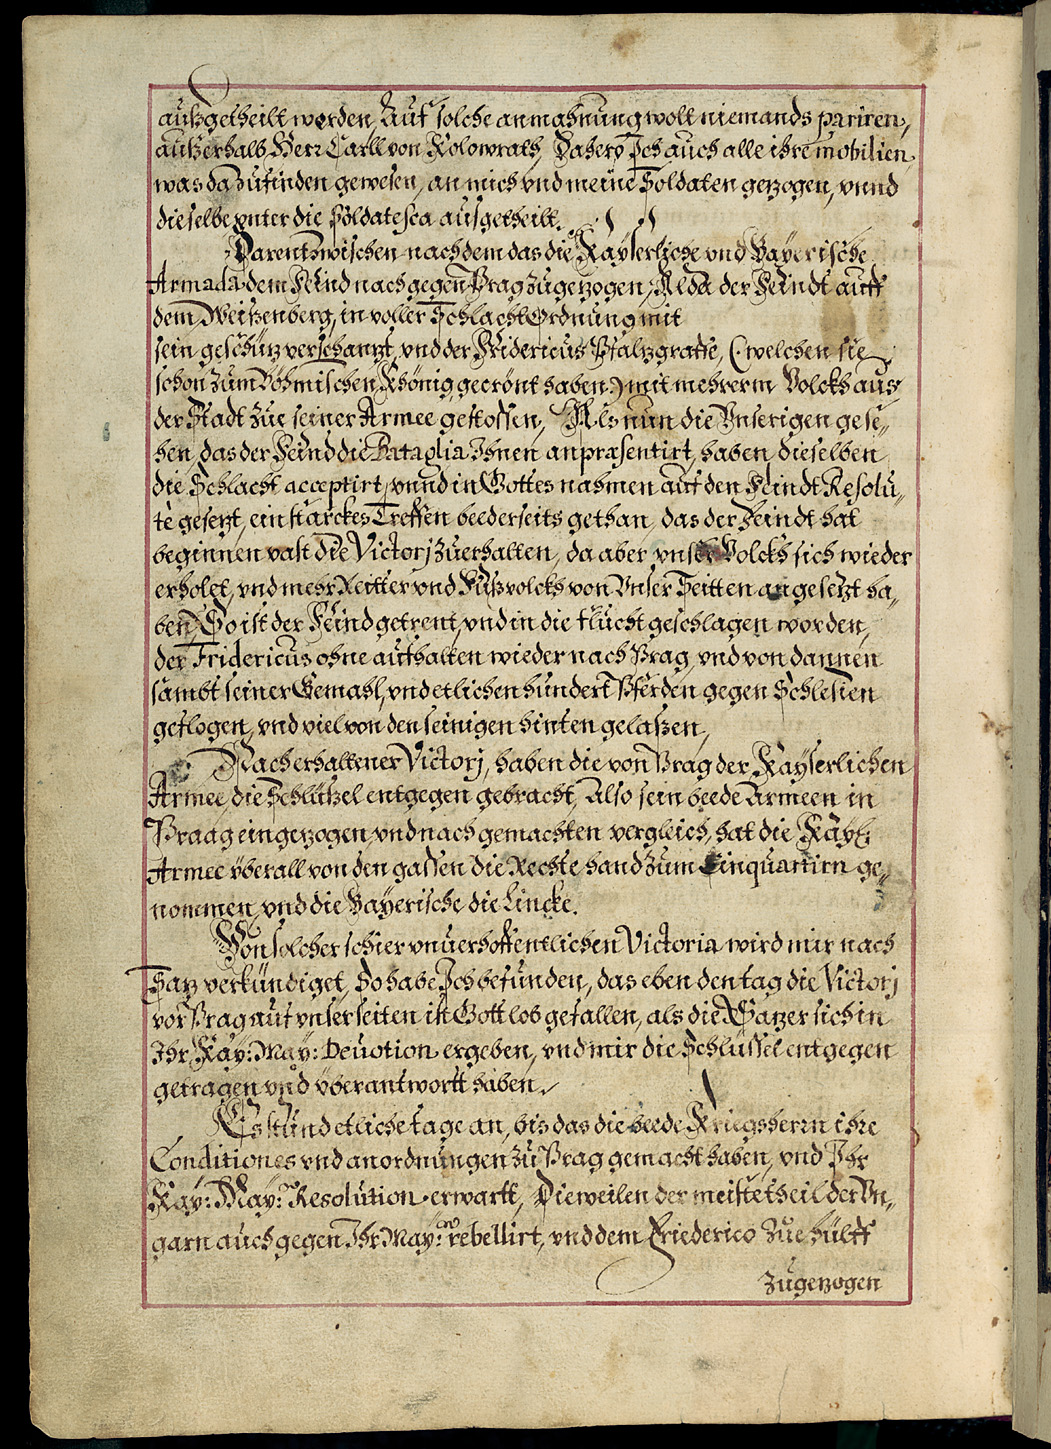 außgetheilt worden, Auf solche anmahnung wolt niemands pariren,
außerhalb Herr Carll von Kolowrath, Dahero Ich auch alle ihre mobilien,
was da zufinden gewesen, an mich vnd meine Soldaten gezogen, vnnd
dieselbe vnter die Soldatesca ausgetheilt.
Darentzwischen nachdem das die Kayserliche vnd Bayerische
Armada dem Feind nach gegen Prag zugezogen, Alda der Feindt auff
dem Weißenberg, in voller Schlacht Ordnung mit
sein geschütz verschantzt, vnd der Fridericus Pfaltzgraffe, (welchen sie
schon zum Böhmischen Khönig gecrönt haben) mit mehrerm Volckh aus
der Stadt zue seiner Armee gestossen, Als nun die Vnserigen gese„
hen, das der Feind die Bataglia Ihnen anpræsentirt, haben dieselben
die Schlacht acceptirt, vnnd in Gottes nahmen auf den Feindt Resolu„
te gesezt, ein starckes Treffen beederseits gethan, das der Feindt hat
beginnen vast die Victorj zuerhalten, da aber vnser Volckh sich wieder
erholet, vnd mehr Reitter vnd Fußvolckh von Vnser Seitten angesetzt ha„
ben, So ist der Feind getrent, vnd in die flucht geschlagen worden,
der Fridericus ohne aufhalten wieder nach Prag, vnd von dannen
sambt seiner Gemahl, vnd etlichen hundert Pferden gegen Schlesien
geflogen, vnd viel von den seinigen hinten gelaßen,
Nach erhaltener Victorj, haben die von Prag der Kayserlichen
Armee, die Schlüßel entgegen gebracht, Also sein beede Armeen in
Praag eingezogen, vnd nach gemachten vergleich, hat die Kayß:
Armee überall von den gassen die Rechte hand zum Einquartirn ge„
nommen, vnd die Bayerische die Lincke.
Von solcher schier vnuerhoffentlichen Victoria wird mir nach
Satz verkündiget, So habe Ich befunden, das eben den tag die Victorj
vor Prag auf vnser seiten ist Gott lob gefallen, als die Satzer sich in
Ihr Kay: May: Deuotion ergeben, vnd mir die Schlüssel entgegen
getragen vnd überantwortt haben.
Es stund etliche tage an, bis das die beede Kriegsherrn ihre
Conditiones vnd anordnungen zu Prag gemacht haben, vnd Ihr
Kay: May: Resolution erwartt, Dieweilen der meiste theil der Vn„
garn auch gegen Ihr May: rebellirt, vnd dem Friederico zue hülff
zugezogen